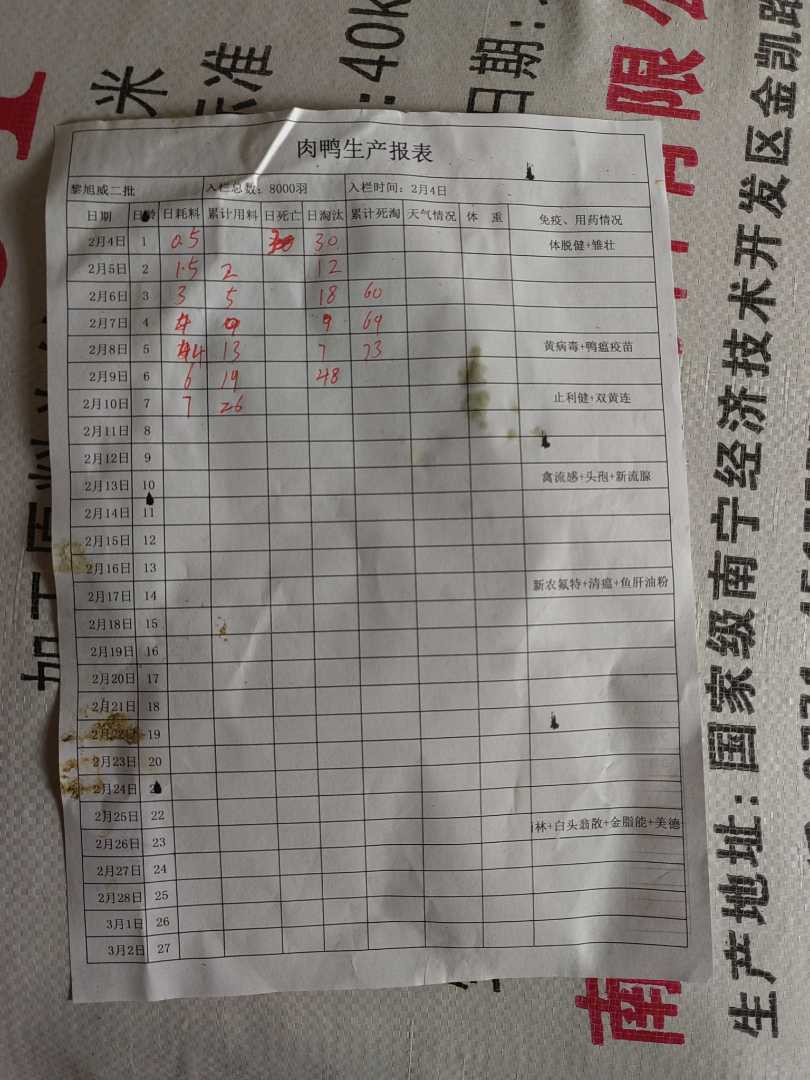 米
标准
:40k
日期:
限公
生产地址:国家级南宁经济技术开发区金凯路
南
肉鸭生产报表
黎旭威二批 入栏总数: 8000羽 入栏时间: 2月4日
日期 日龄 日耗料 累计用料 日死亡 日淘汰 累计死淘 天气情况 体 重 免疫、用药情况
2月4日 1 0.5 30 体脱健+雏壮
2月5日 2 1.5 2 12
2月6日 3 3 5 18 60
2月7日 4 4 9 9 69
2月8日 5 4 13 7 73 黄病毒+鸭瘟疫苗
2月9日 6 6 19 48
2月10日 7 7 26 止利健+双黄连
2月11日 8
2月12日 9
2月13日 10 禽流感+头孢+新流腺
2月14日 11
2月15日 12
2月16日 13
2月17日 14 新农氟特+清瘟+鱼肝油粉
2月18日 15
2月19日 16
2月20日 17
2月21日 18
2月22日 19
2月23日 20
2月24日 2
2月25日 22
2月26日 23 林+白头翁散+金脂能+美德
2月27日 24
2月28日 25
3月1日 26
3月2日 27